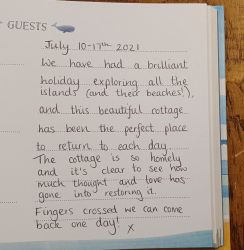 GUESTS
July 10-17th 2021
We have had a brilliant
holiday exploring all the
islands (and their beaches!),
and this beautiful cottage
has been the perfect place
to return to each day.
The cottage is so homely
and it's clear to see how
much thought and love has
gone into restoring it.
Fingers crossed we can come
back one day! x